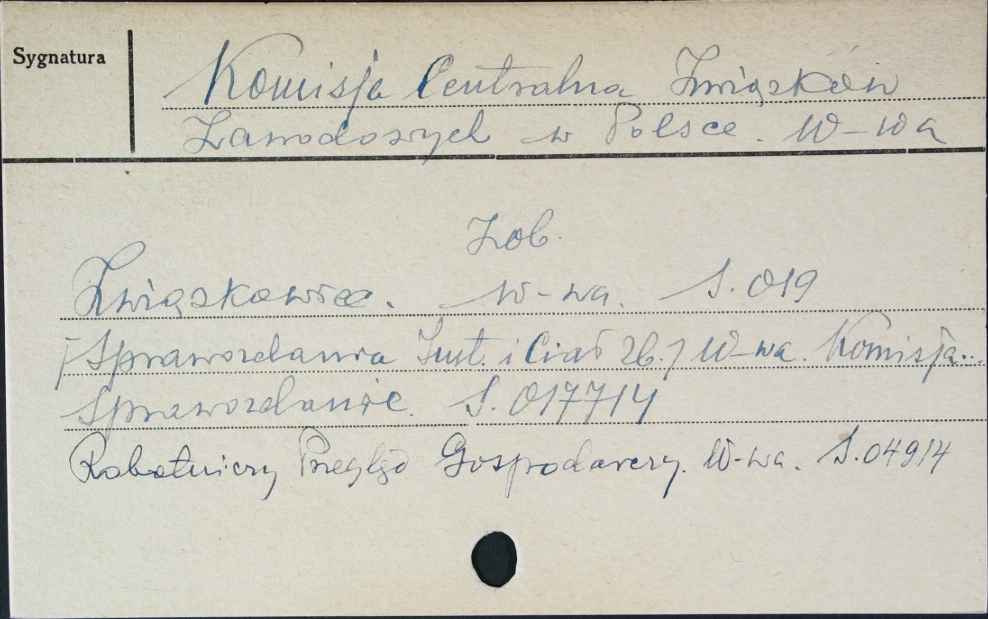 Sygnatura
Komisja Centralna Związków
Zawodowych w Polsce. W-wa
Zob.
Związkowiec. W-wa. S. 019
[Sprawozdania Inst. i Ciał Zb.] W-wa. Komisja...
Sprawozdanie. S. 017714
Robotniczy Przegląd Gospodarczy. W-wa. S. 04914